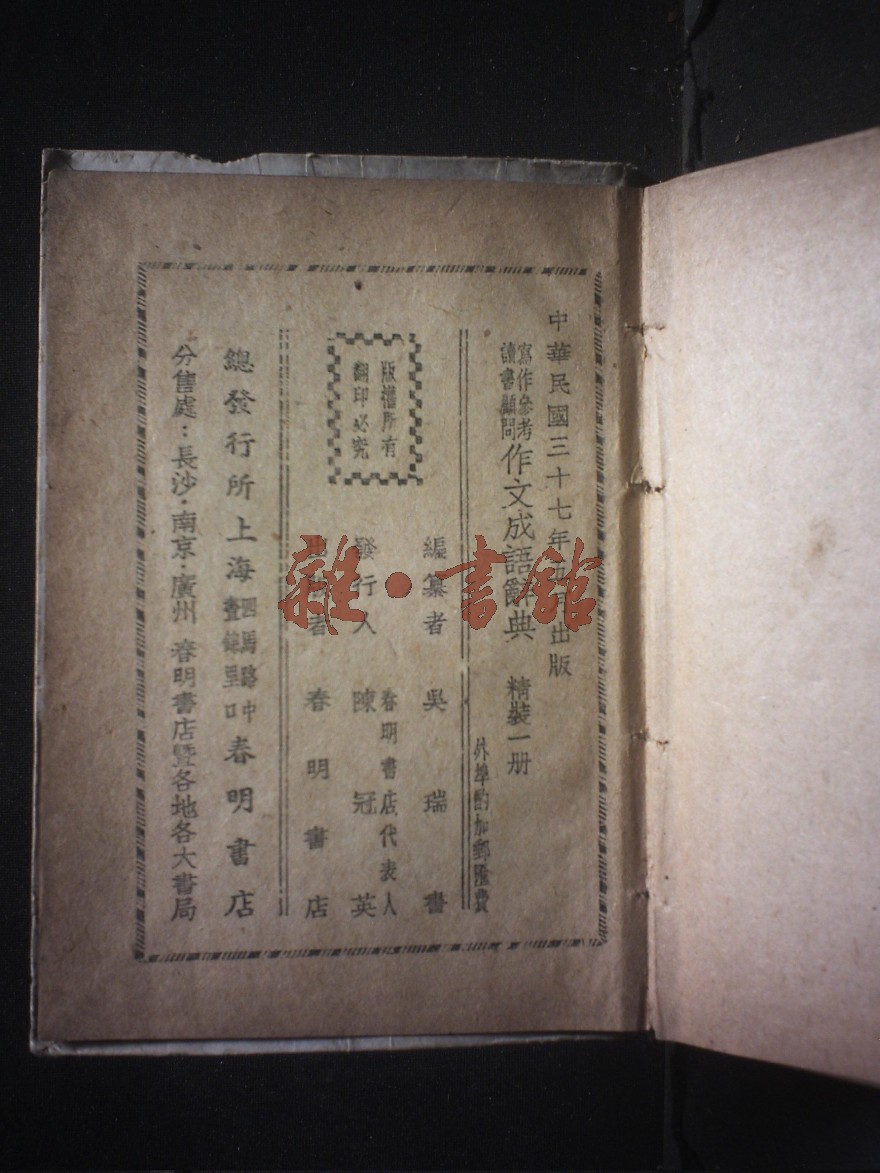 中華民國三十七年五月出版
寫作參考
讀書顧問
作文成語辭典 精裝一册
外埠酌加郵匯費
版權所有
翻印必究
編纂者 吳瑞書
發行人 春明書店代表人
陳冠英
出版者 春明書店
總發行所上海四馬路中
畫錦里口
春明書店
分售處：長沙·南京·廣州 春明書店暨各地各大書局
雜·書館